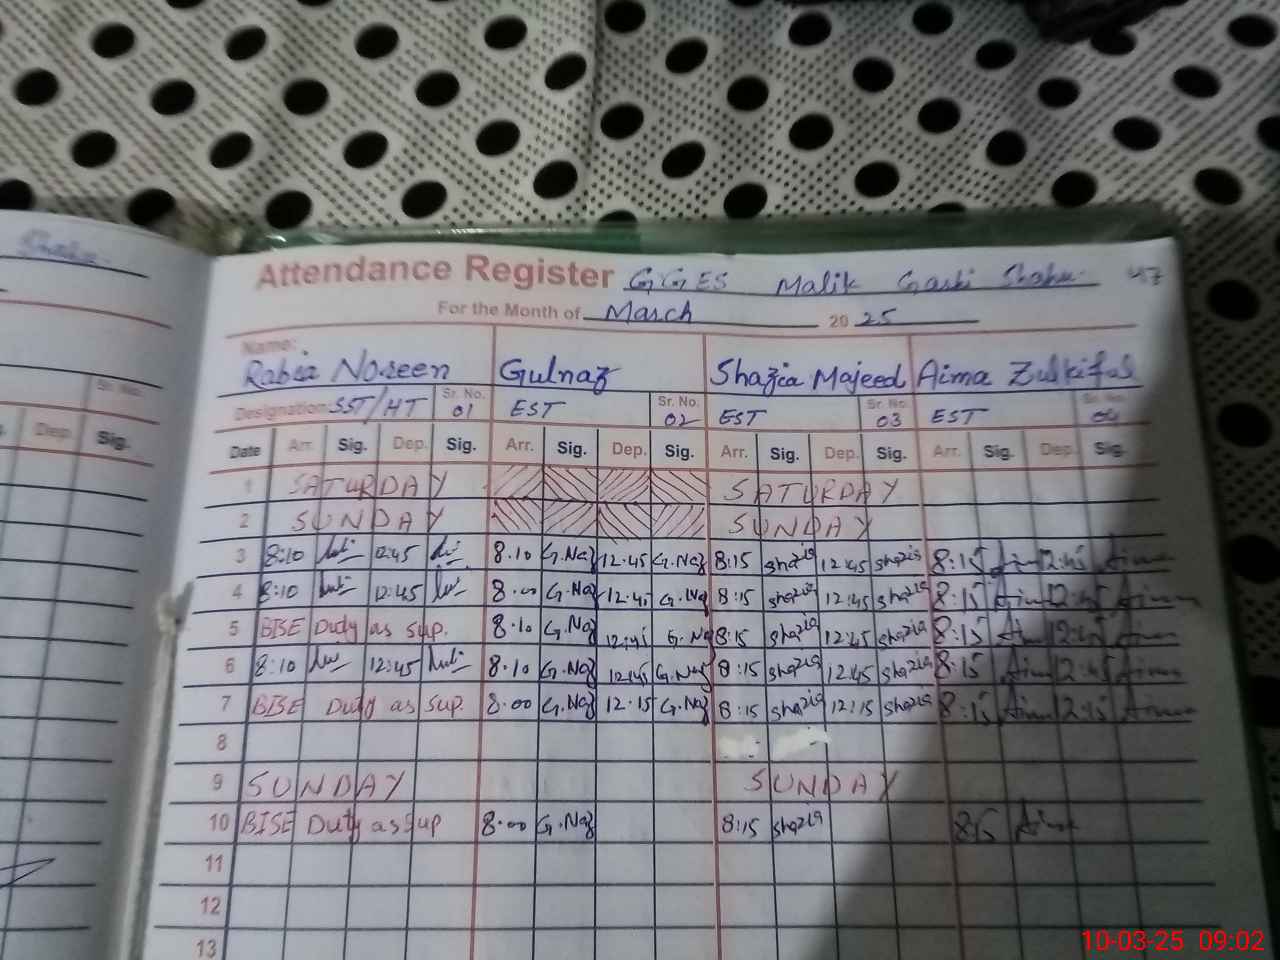 Attendance Register GGES Malik Garhi Shahu 47
For the Month of March 20 25
Name:
Rabia Noreen Gulnaz Shazia Majeed Aima Zulkifal
Designation: SST/HT Sr. No. 01 EST Sr. No. 02 EST Sr. No. 03 EST Sr. No. 04
Dep. Sig. Date Arr. Sig. Dep. Sig. Arr. Sig. Dep. Sig. Arr. Sig. Dep. Sig. Arr. Sig. Dep. Sig.
1 SATURDAY SATURDAY
2 SUNDAY SUNDAY
3 8:10 12:45 8.10 G.Naz 12.45 G.Naz 8:15 shazia 12:45 shazia 8:15 Aima 12:45 Aima
4 8:10 12:45 8.00 G.Naz 12.45 G.Naz 8:15 shazia 12:45 shazia 8:15 Aima 12:45 Aima
5 BISE Duty as sup. 8.10 G.Naz 12.45 G.Naz 8:15 shazia 12:45 shazia 8:15 Aima 12:45 Aima
6 8:10 12:45 8.10 G.Naz 12.45 G.Naz 8:15 shazia 12:45 shazia 8:15 Aima 12:45 Aima
7 BISE Duty as sup. 8.00 G.Naz 12.15 G.Naz 8:15 shazia 12:15 shazia 8:15 Aima 12:15 Aima
8
9 SUNDAY SUNDAY
10 BISE Duty as Sup 8.00 G.Naz 8:15 shazia 8:15 Aima
11
12
13
10-03-25 09:02